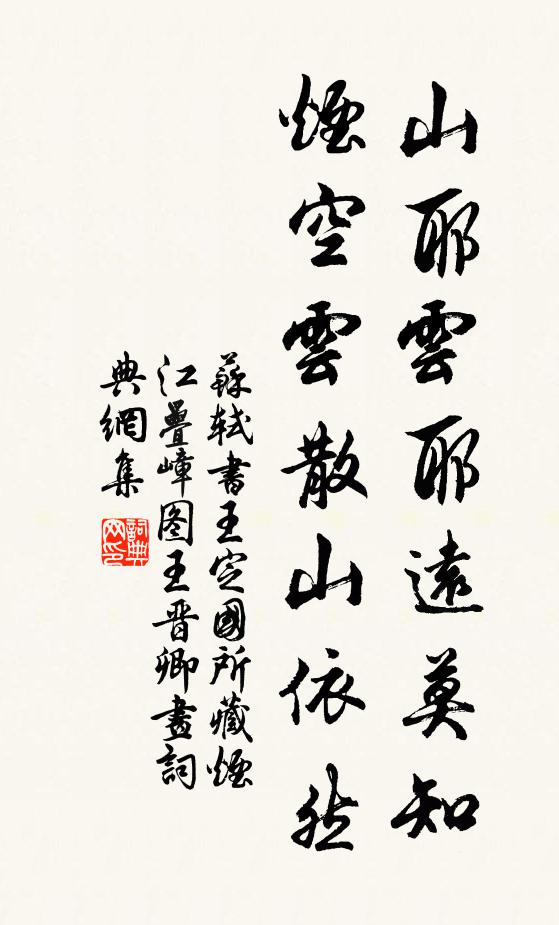 山耶雲耶遠莫知
煙空雲散山依然
蘇軾書王定國所藏煙
江疊嶂图王晋卿畫詞
典網集
詞典
网印